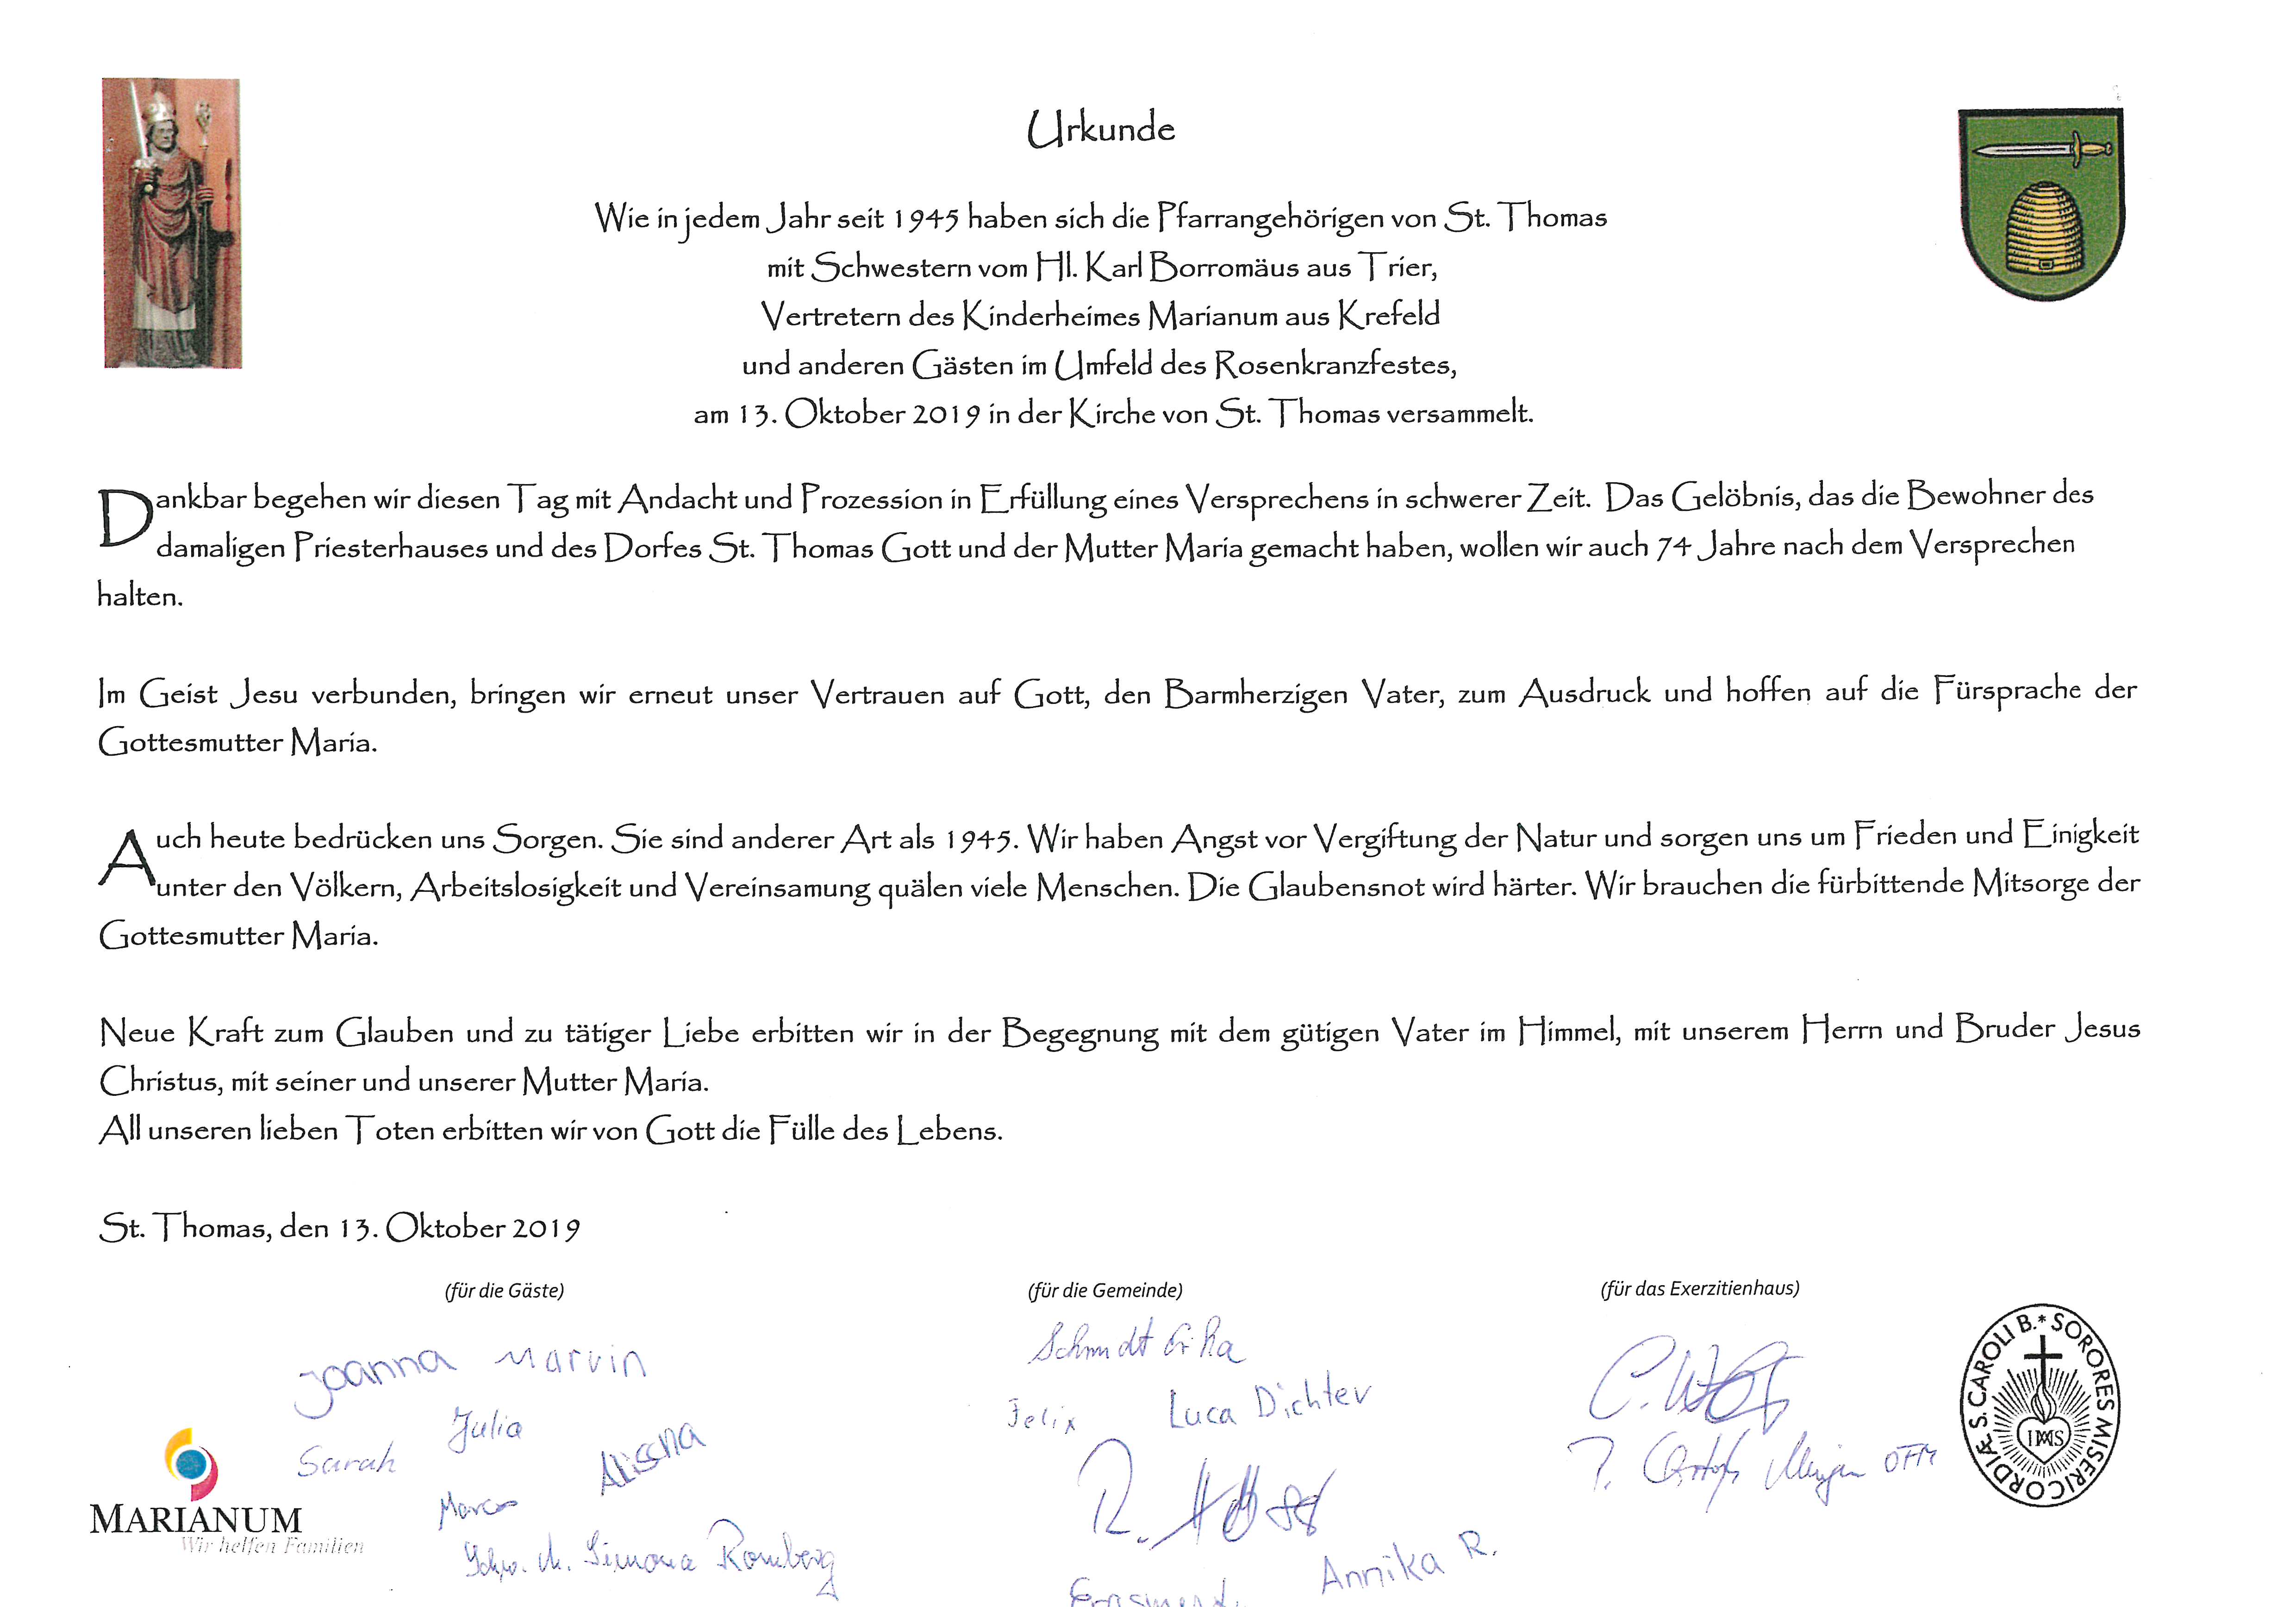 Urkunde
Wie in jedem Jahr seit 1945 haben sich die Pfarrangehörigen von St. Thomas
mit Schwestern vom Hl. Karl Borromäus aus Trier,
Vertretern des Kinderheimes Marianum aus Krefeld
und anderen Gästen im Umfeld des Rosenkranzfestes,
am 13. Oktober 2019 in der Kirche von St. Thomas versammelt.
Dankbar begehen wir diesen Tag mit Andacht und Prozession in Erfüllung eines Versprechens in schwerer Zeit. Das Gelöbnis, das die Bewohner des
damaligen Priesterhauses und des Dorfes St. Thomas Gott und der Mutter Maria gemacht haben, wollen wir auch 74 Jahre nach dem Versprechen
halten.
Im Geist Jesu verbunden, bringen wir erneut unser Vertrauen auf Gott, den Barmherzigen Vater, zum Ausdruck und hoffen auf die Fürsprache der
Gottesmutter Maria.
Auch heute bedrücken uns Sorgen. Sie sind anderer Art als 1945. Wir haben Angst vor Vergiftung der Natur und sorgen uns um Frieden und Einigkeit
unter den Völkern, Arbeitslosigkeit und Vereinsamung quälen viele Menschen. Die Glaubensnot wird härter. Wir brauchen die fürbittende Mitsorge der
Gottesmutter Maria.
Neue Kraft zum Glauben und zu tätiger Liebe erbitten wir in der Begegnung mit dem gütigen Vater im Himmel, mit unserem Herrn und Bruder Jesus
Christus, mit seiner und unserer Mutter Maria.
All unseren lieben Toten erbitten wir von Gott die Fülle des Lebens.
St. Thomas, den 13. Oktober 2019
(für die Gäste)
Joanna Marvin
Julia
Sarah
Marco
Schw. M. Simona Romberg
(für die Gemeinde)
Schmidt Erika
Felix Luca Dichter
R.
Annika R.
(für das Exerzitienhaus)
C.
P. OFM
MARIANUM
Wir helfen Familien
SORORES MISERICORDIÆ S. CAROLI B. *
IHS